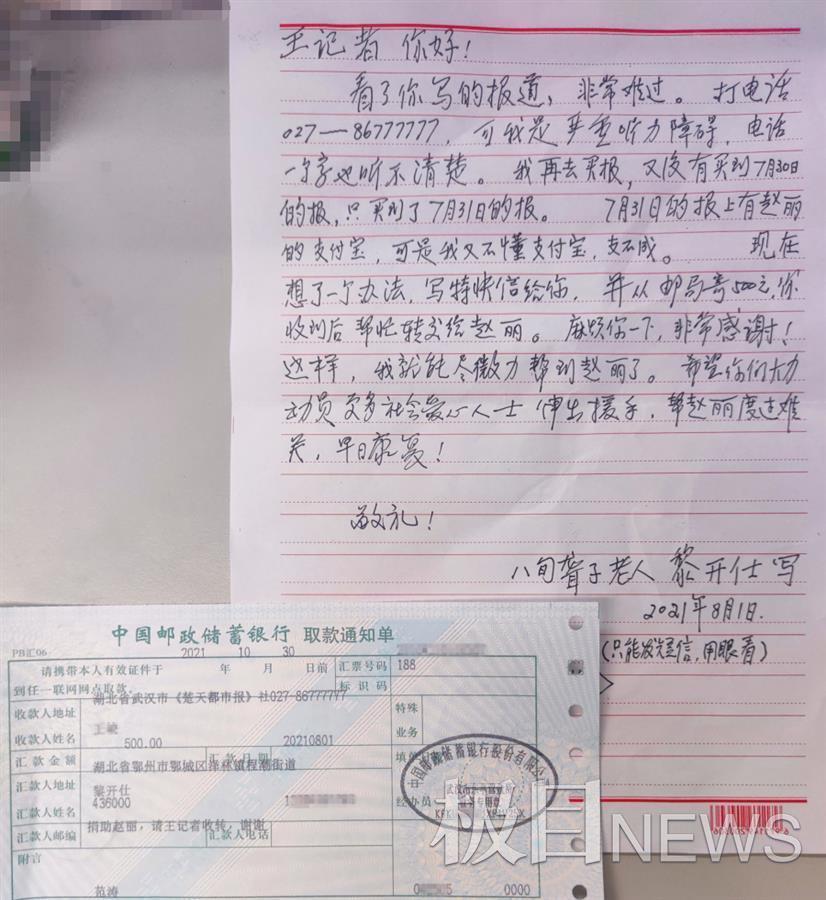 王记者 你好！
看了你写的报道，非常难过。 打电话
027—86777777，可我是严重听力障碍，电话
一个字也听不清楚。我再去买报，又没有买到7月30日
的报，只买到了7月31日的报。 7月31日的报上有赵丽
的支付宝，可是我又不懂支付宝，支不成。 现在
想了一个办法，写特快信给你，并从邮局寄500元，你
收到后帮忙转交给赵丽。麻烦你一下，非常感谢！
这样，我就能尽微力帮到赵丽了。希望你们大力
动员更多社会爱心人士伸出援手，帮赵丽度过难
关，早日康复！
敬礼！
八旬聋子老人 黎开仕写
2021年8月1日.
(只能发短信，用眼看)
中国邮政储蓄银行 取款通知单
PB汇06
2021 10 30
请携带本人有效证件于 年 月 日前
到任一联网网点取款
汇票号码 188
标识码
收款人地址 湖北省武汉市《楚天都市报》社027-86777777
收款人姓名 王
特殊业务
汇款金额 500.00 汇款日期 20210801
汇款人地址 湖北省鄂州市鄂城区泽林镇程潮街道
汇款人姓名 黎开仕
经办员
汇款人邮编 436000 汇款人电话 1
附言 捐助赵丽，请王记者收转，谢谢
范涛
0000
中国邮政储蓄银行股份有限公司
极目NEWS